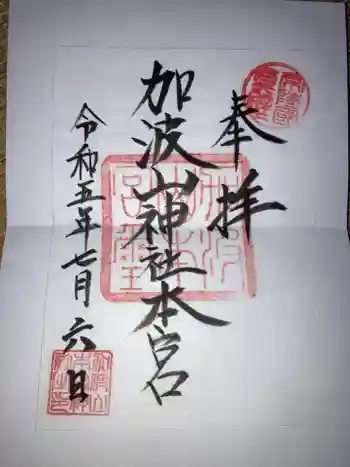 奉拝
加波山神社本宮
令和五年七月六日